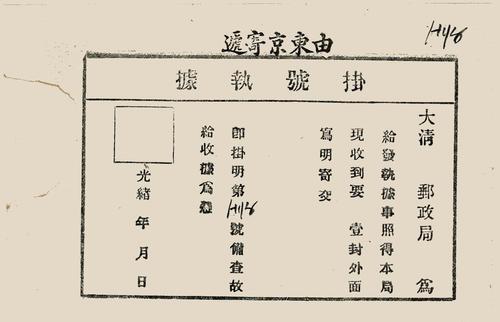 由東京寄遞
掛號執據
大淸郵政局爲
給發執據事照得本局
現收到要 壹封外面
寫明寄交
卽掛明第 號備查故
給收據爲憑
光緒 年 月 日